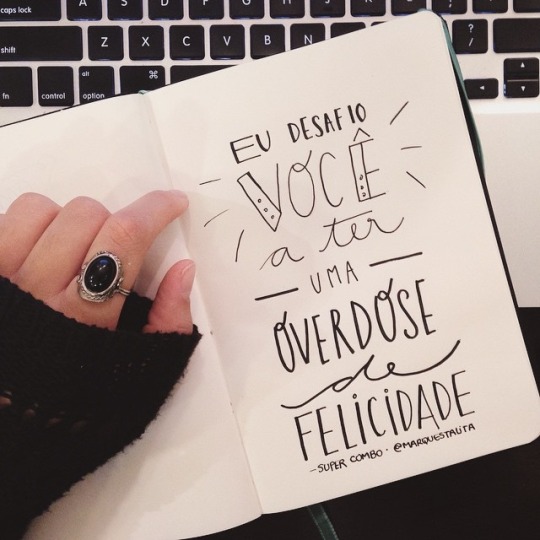 caps lock A S D F G H J K
shift Z X C V B N M ? /
fn control alt option ⌘
EU DESAFIO
VOCÊ
a ter
UMA
OVERDOSE
de
FELICIDADE
-SUPER COMBO · @MARQUESTALITA